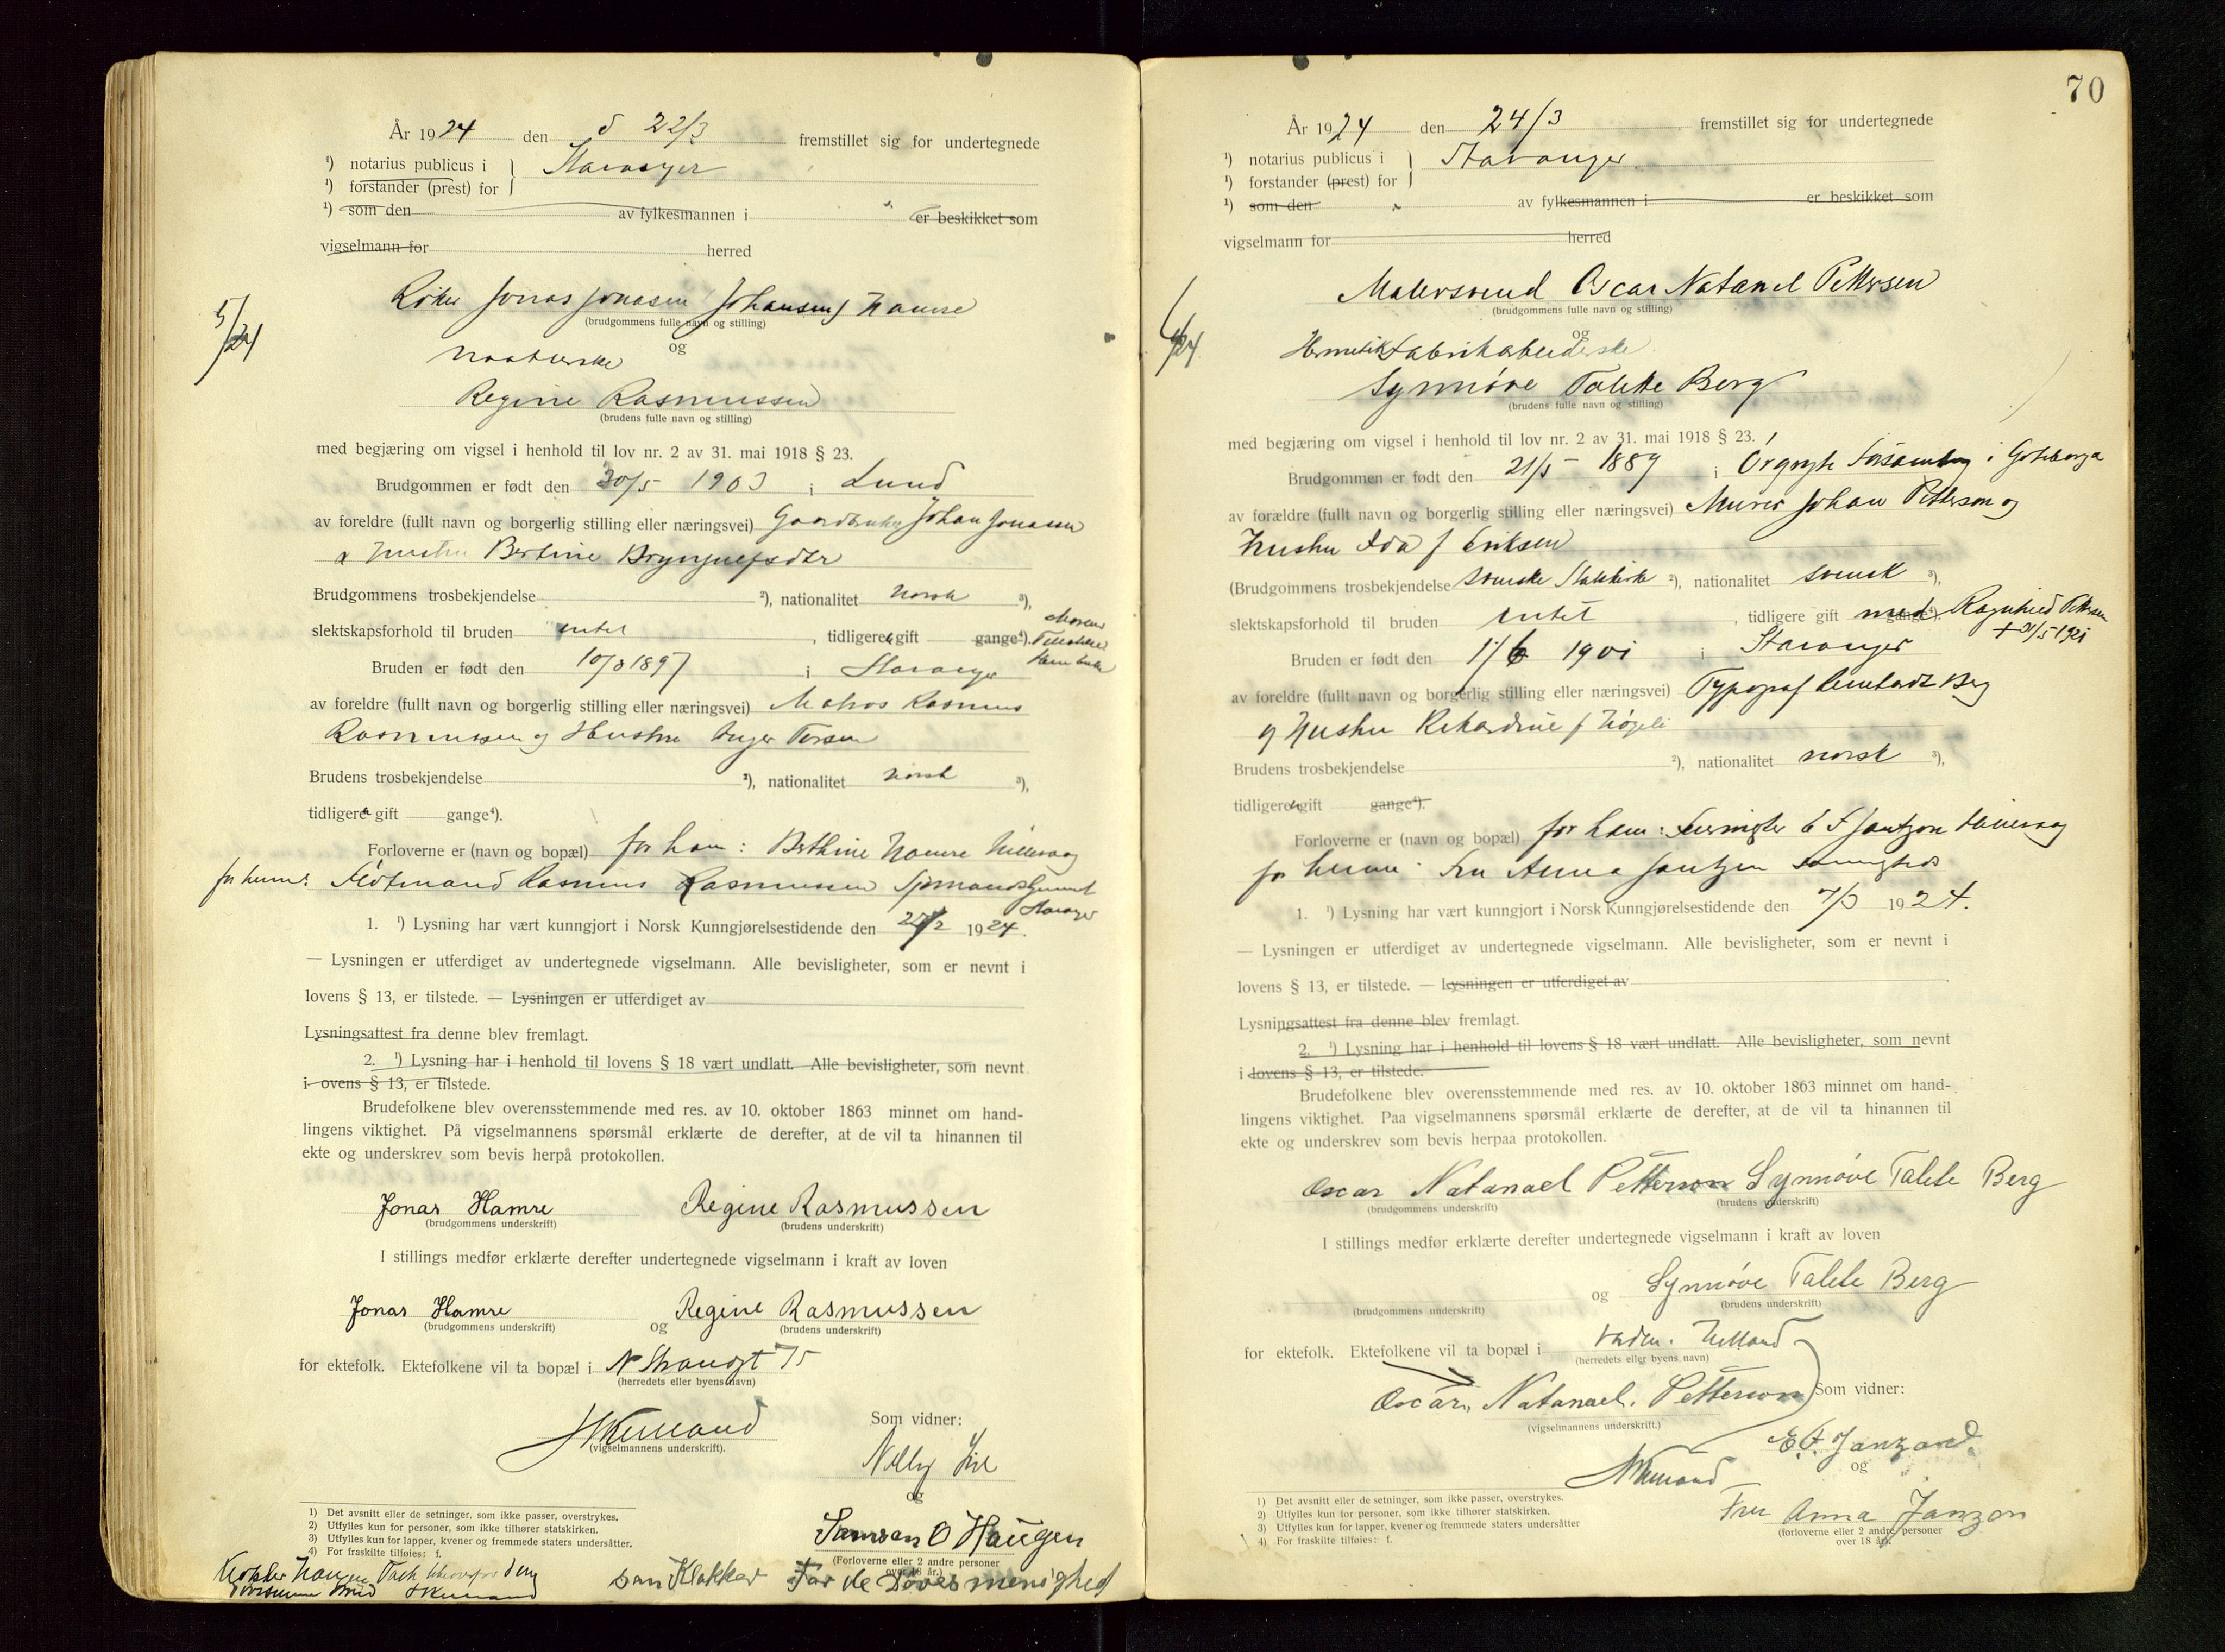 År 1924 den 22/3 fremstillet sig for undertegnede
¹) notarius publicus i } Stavanger
¹) forstander (prest) for
¹) som den av fylkesmannen i er beskikket som
vigselmann for herred
5/24
Jonas Jonasen (Johansen) Hamre
(brudgommens fulle navn og stilling)
og
Regine Rasmussen
(brudens fulle navn og stilling)
med begjæring om vigsel i henhold til lov nr. 2 av 31. mai 1918 § 23.
Brudgommen er født den 30/5 1903 i Lund
av foreldre (fullt navn og borgerlig stilling eller næringsvei) Gaardbruker Johan Jonasen
Hustru Bertine
Brudgommens trosbekjendelse ²), nationalitet norsk ³),
slektskapsforhold til bruden intet, tidligere gift gange⁴).
Bruden er født den 10/8 1897 i Stavanger
av foreldre (fullt navn og borgerlig stilling eller næringsvei) Matros Rasmus
Rasmussen og Hustru Inger
Brudens trosbekjendelse ²), nationalitet norsk ³),
tidligere gift gange⁴).
Forloverne er (navn og bopæl) for ham: Berthine Hamre Hillevaag
for henne: Rasmus Rasmussen
Stavanger
1. ¹) Lysning har vært kunngjort i Norsk Kunngjørelsestidende den 27/2 1924.
— Lysningen er utferdiget av undertegnede vigselmann. Alle bevisligheter, som er nevnt i
lovens § 13, er tilstede. — Lysningen er utferdiget av
Lysningsattest fra denne blev fremlagt.
2. ¹) Lysning har i henhold til lovens § 18 vært undlatt. Alle bevisligheter, som nevnt
i ovens § 13, er tilstede.
Brudefolkene blev overensstemmende med res. av 10. oktober 1863 minnet om hand-
lingens viktighet. På vigselmannens spørsmål erklærte de derefter, at de vil ta hinannen til
ekte og underskrev som bevis herpå protokollen.
Jonas Hamre Regine Rasmussen
(brudgommens underskrift) (brudens underskrift)
I stillings medfør erklærte derefter undertegnede vigselmann i kraft av loven
Jonas Hamre og Regine Rasmussen
(brudgommens underskrift) (brudens underskrift)
for ektefolk. Ektefolkene vil ta bopæl i N Strandgt 75
(herredets eller byens navn)
(vigselmannens underskrift).
Som vidner:
Nelly
og
Samson O Haugen
(Forloverne eller 2 andre personer
over 18 år.)
1) Det avsnitt eller de setninger, som ikke passer, overstrykes.
2) Utfylles kun for personer, som ikke tilhører statskirken.
3) Utfylles kun for lapper, kvener og fremmede staters undersåtter.
4) For fraskilte tilføies: f.
som Klokker For de Døves menighed
70
År 1924 den 24/3 fremstillet sig for undertegnede
¹) notarius publicus i } Stavanger
¹) forstander (prest) for
¹) som den av fylkesmannen i er beskikket som
vigselmann for herred
Malersvend Oscar Natanael Pettersen
(brudgommens fulle navn og stilling)
og
Hermetikfabrikarbeiderske
Synnøve Talette Berg
(brudens fulle navn og stilling)
med begjæring om vigsel i henhold til lov nr. 2 av 31. mai 1918 § 23.
Brudgommen er født den 21/5 1889 i Ørgryte Forsamling i Gøteborg
av forældre (fullt navn og borgerlig stilling eller næringsvei) Murer Johan Petterson og
Hustru Ida f Eriksen
(Brudgommens trosbekjendelse svenske Statskirke ²), nationalitet svensk ³),
slektskapsforhold til bruden intet, tidligere gift med Ragnhild Pettersen
gange⁴).
Bruden er født den 1/6 1901 i Stavanger
av foreldre (fullt navn og borgerlig stilling eller næringsvei) Typograf Berg
og Hustru Rikardine f
Brudens trosbekjendelse ²), nationalitet norsk ³),
tidligere gift gange⁴).
Forloverne er (navn og bopæl) for ham: Hillevaag
for henne: Fru Anna Jantzen sammesteds
1. ¹) Lysning har vært kunngjort i Norsk Kunngjørelsestidende den 7/3 1924.
— Lysningen er utferdiget av undertegnede vigselmann. Alle bevisligheter, som er nevnt i
lovens § 13, er tilstede. — Lysningen er utferdiget av
Lysningsattest fra denne blev fremlagt.
2. ¹) Lysning har i henhold til lovens § 18 vært undlatt. Alle bevisligheter, som nevnt
i lovens § 13, er tilstede.
Brudefolkene blev overensstemmende med res. av 10. oktober 1863 minnet om hand-
lingens viktighet. Paa vigselmannens spørsmål erklærte de derefter, at de vil ta hinannen til
ekte og underskrev som bevis herpaa protokollen.
Oscar Natanael Petterson Synnøve Talete Berg
(brudgommens underskrift) (brudens underskrift)
I stillings medfør erklærte derefter undertegnede vigselmann i kraft av loven
og Synnøve Talete Berg
(brudgommens underskrift) (brudens underskrift)
for ektefolk. Ektefolkene vil ta bopæl i
(herredets eller byens navn)
Oscar. Natanael. Petterson
(vigselmannens underskrift.)
Som vidner:
E. F. Janzon
og
Fru Anna Janzon
(forloverne eller 2 andre personer
over 18 år.
1) Det avsnitt eller de setninger, som ikke passer, overstrykes.
2) Utfylles kun for personer, som ikke tilhører statskirken.
3) Utfylles kun for lapper, kvener og fremmede staters undersåtter
4) For fraskilte tilføies: f.